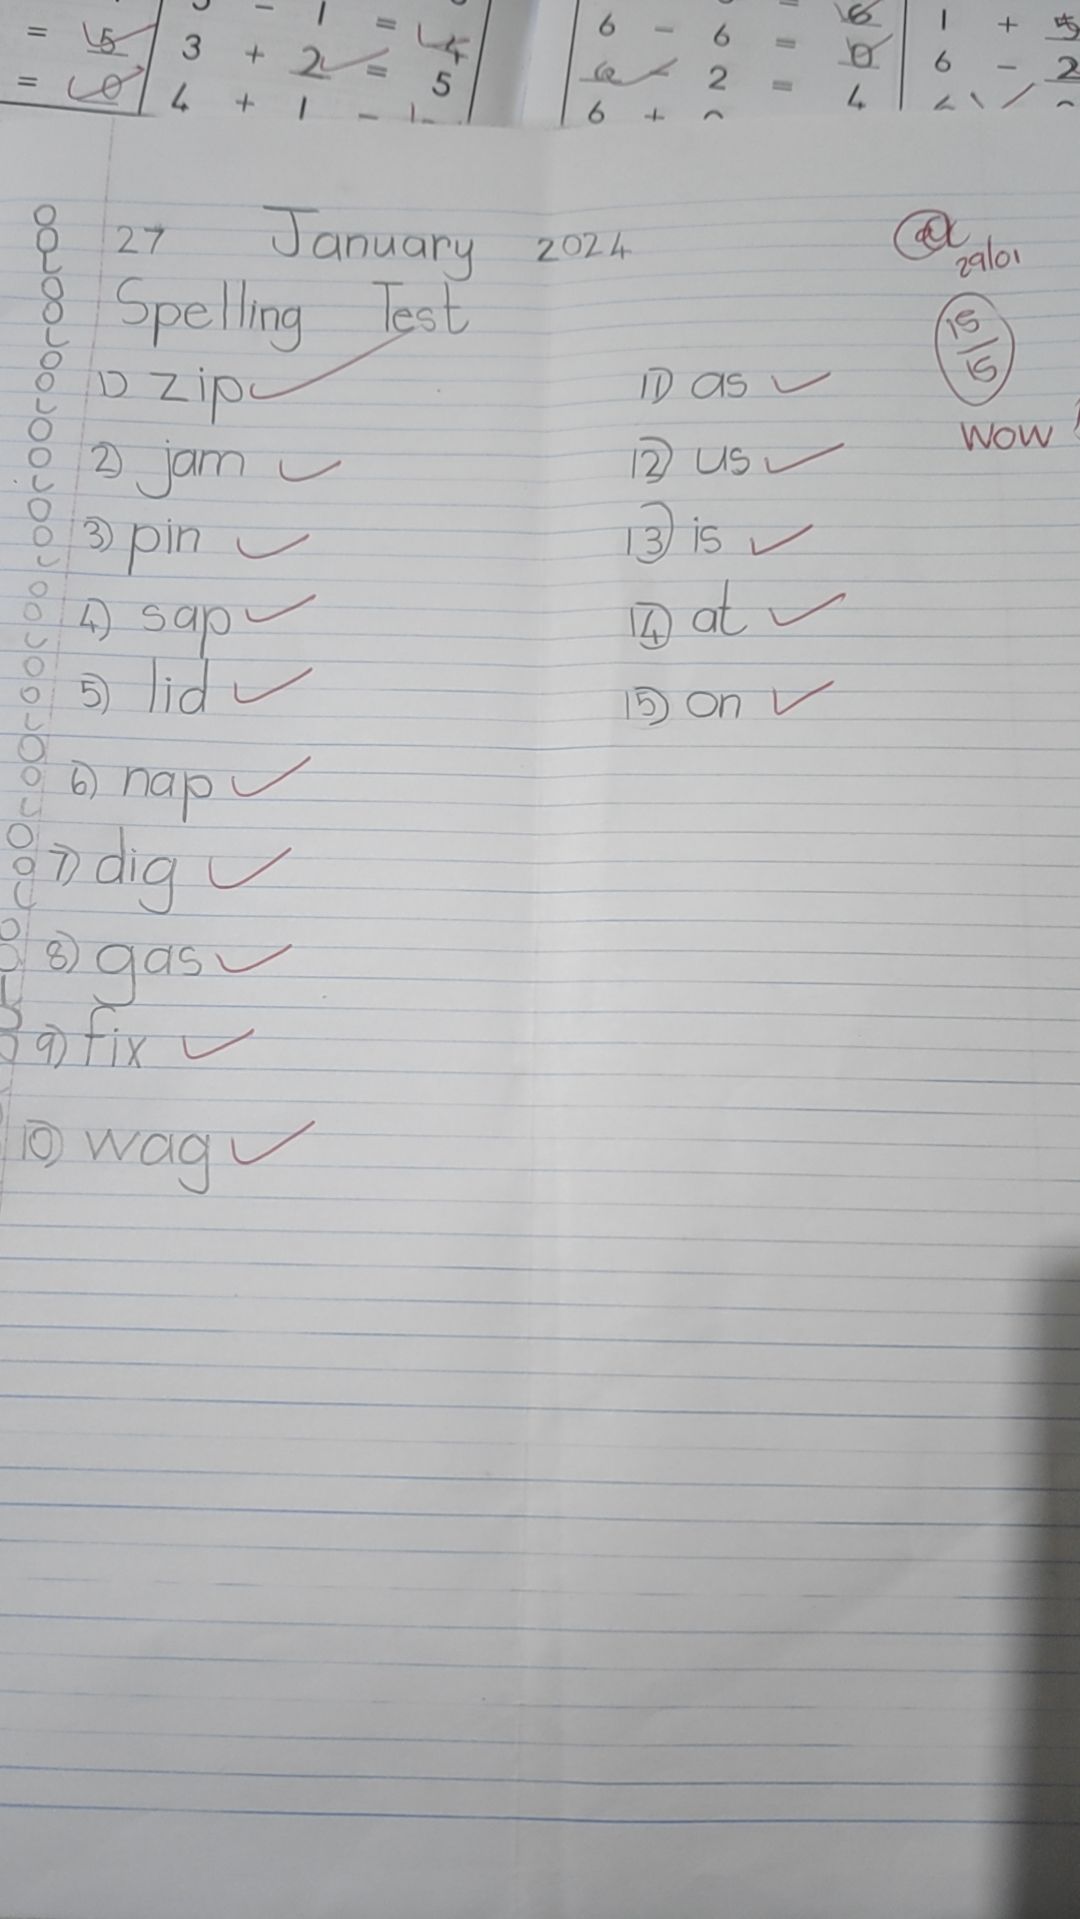 - 1 = 4
= 5 3 + 2 = 5
= 0 4 + 1
6 - 6 = 0
6 - 2 = 4
6 +
1 + 5
6 - 2
27 January 2024
29/01
Spelling Test
15/15
WOW
1) zip
2) jam
3) pin
4) sap
5) lid
6) nap
7) dig
8) gas
9) fix
10) wag
11) as
12) us
13) is
14) at
15) on